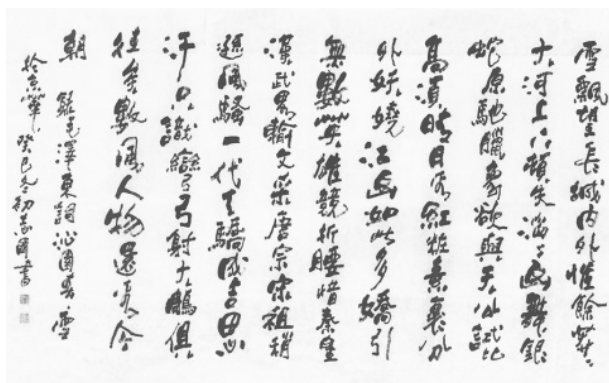 雪飄望長城內外惟餘莽〻
大河上下頓失滔〻山舞銀
蛇原馳臘象欲與天公試比
高須晴日看紅粧素裹分
外妖嬈江山如此多嬌引
無數英雄競折腰惜秦皇
漢武畧輸文采唐宗宋祖稍
遜風騷一代天驕成吉思
汗只識彎弓射大鵰俱
往矣數風人物還看今
朝 錄毛澤東詞沁園春·雪
於京華癸巳冬初 書